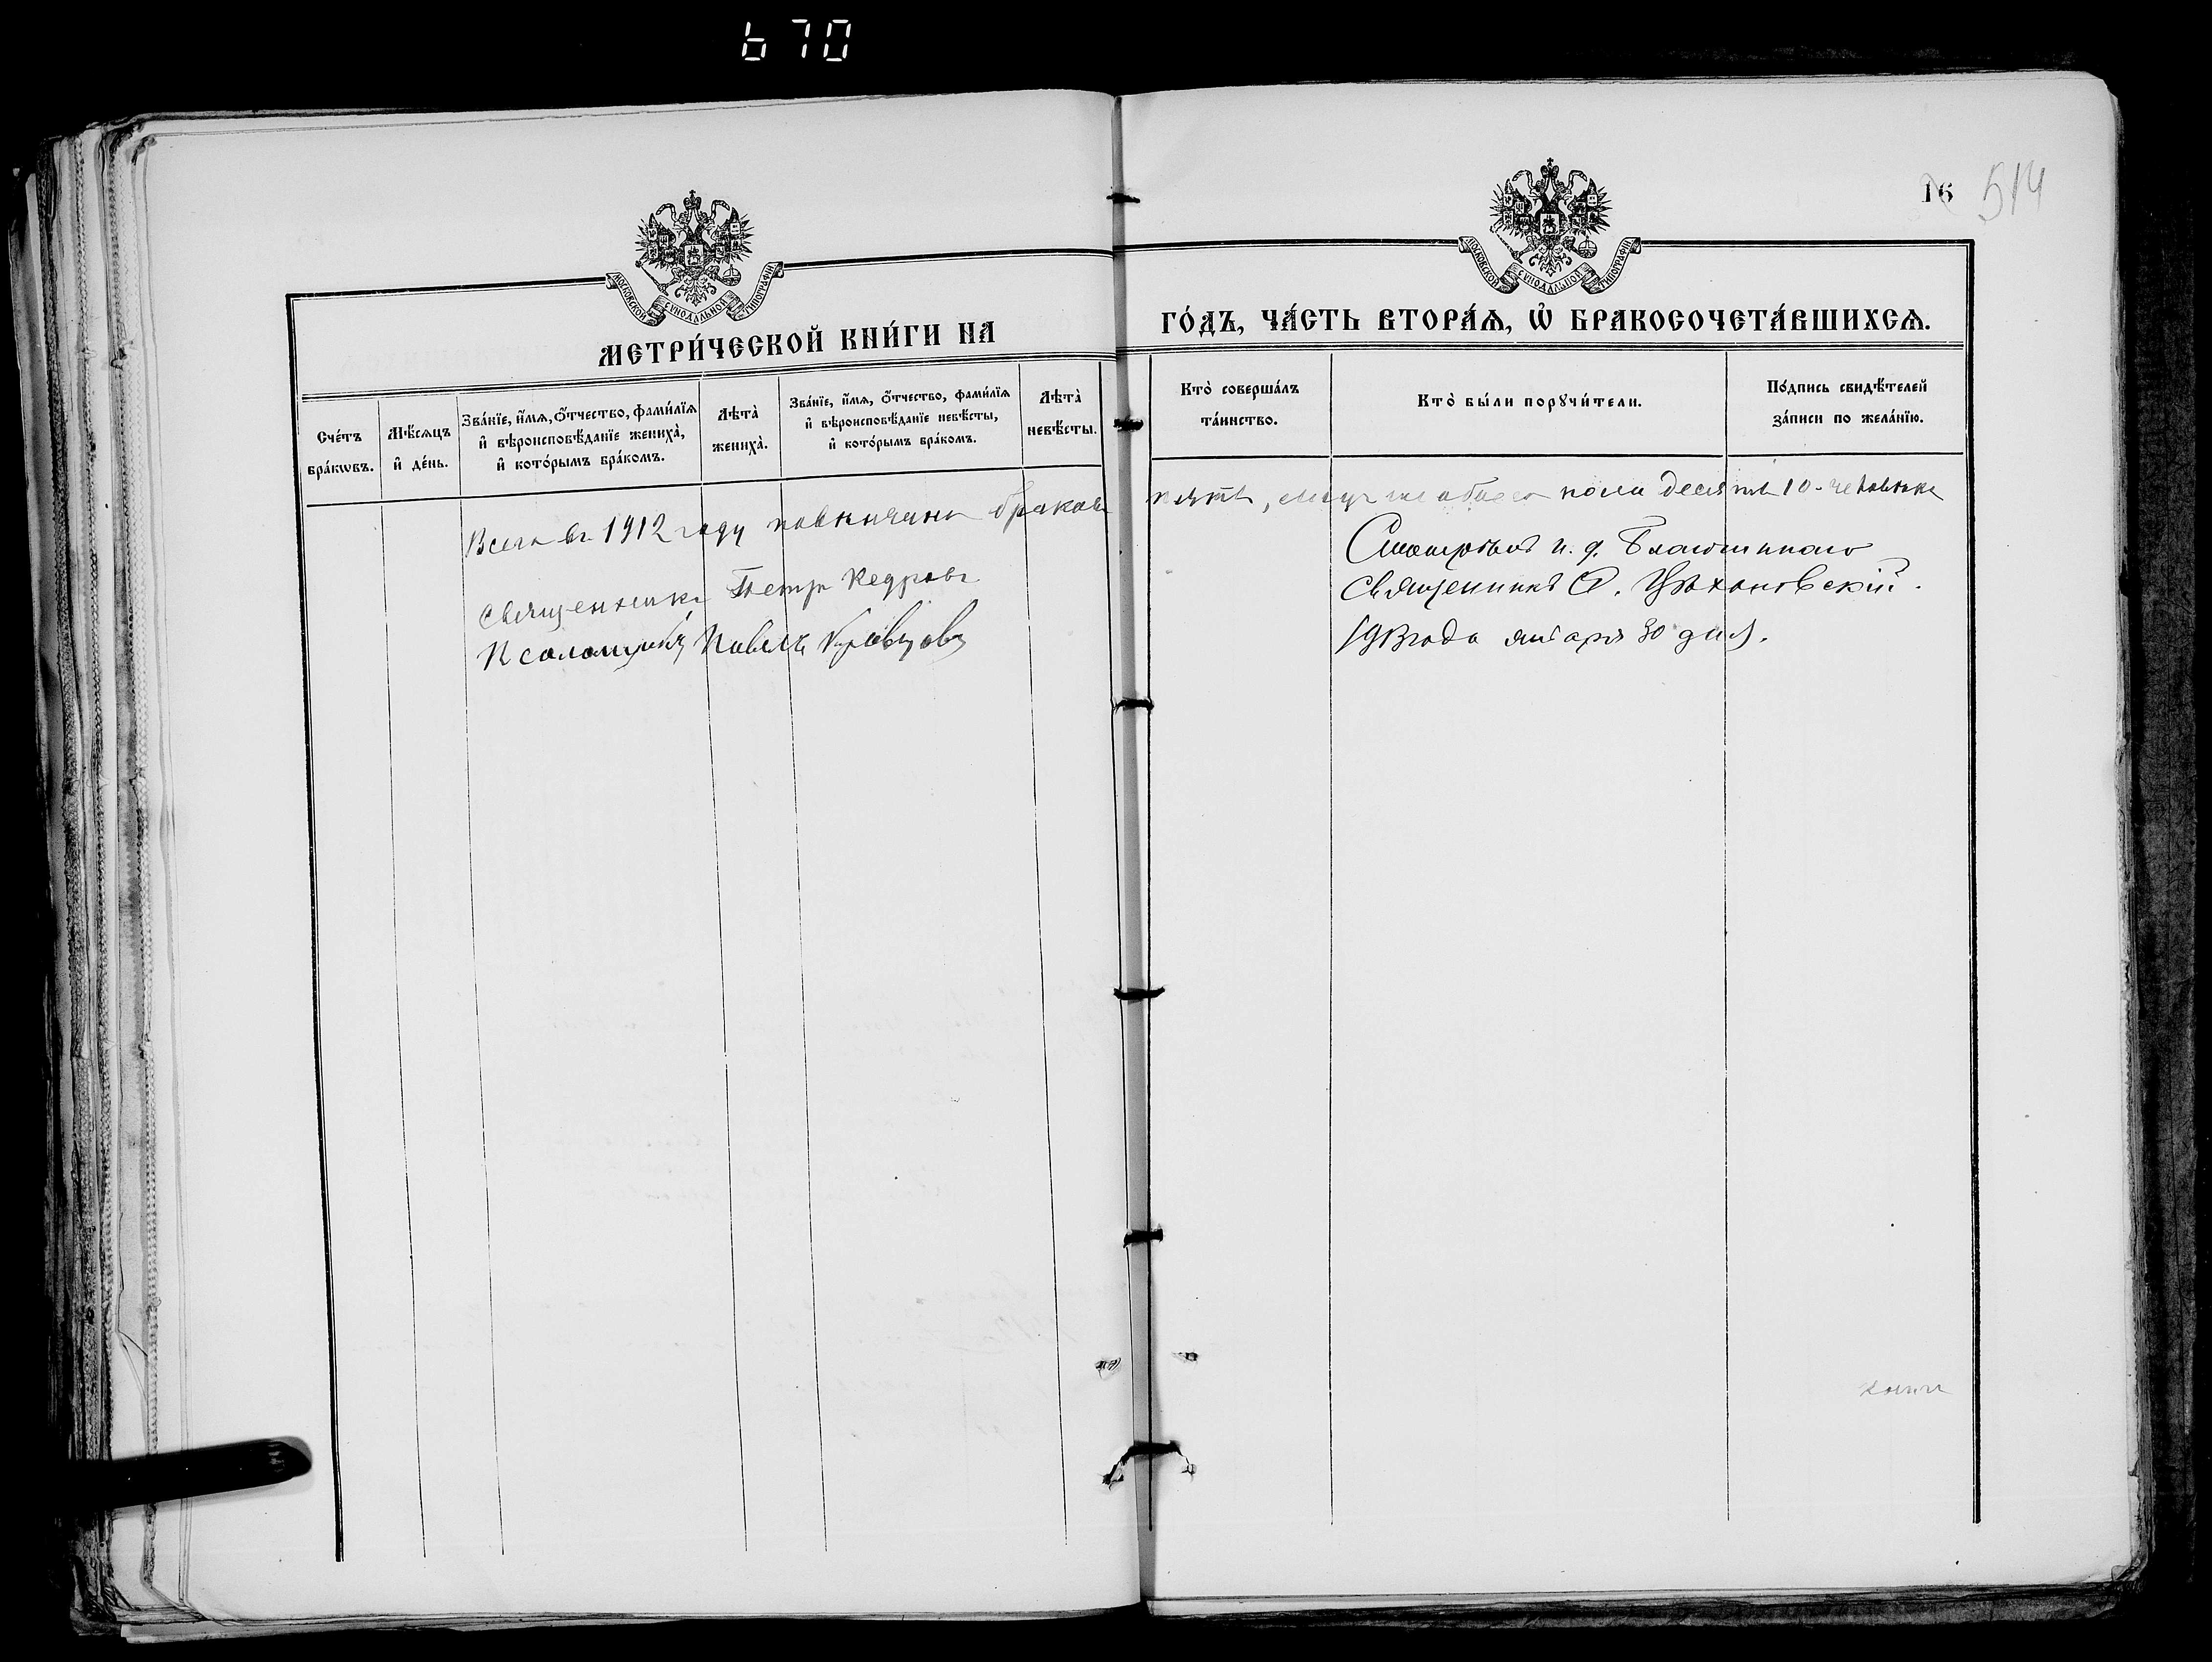 670
16 514
МОСКОВСКОЙ СѴНОДАЛЬНОЙ ТИПОГРАФІИ
МОСКОВСКОЙ СѴНОДАЛЬНОЙ ТИПОГРАФІИ
МЕТРИ́ЧЕСКОЙ КНИ́ГИ НА ГО́ДЪ, ЧА́СТЬ ВТОРА́Ѧ, Ѡ҆ БРАКОСОЧЕТА́ВШИХСѦ.
Сче́тъ
бра́кѡвъ.
Мѣ́сѧцъ
и҆ де́нь.
Зва́нїе, и҆́мѧ, ѻ҆́тчество, фами́лїѧ
и҆ вѣроисповѣ́данїе жениха̀,
и҆ кото́рымъ бра́комъ.
Лѣта̀
жениха̀.
Зва́нїе, и҆́мѧ, ѻ҆́тчество, фами́лїѧ
и҆ вѣроисповѣ́данїе невѣ́сты,
и҆ кото́рымъ бра́комъ.
Лѣта̀
невѣ́сты.
Кто̀ соверша́лъ
та́инство.
Кто̀ бы́ли порꙋчи́тели.
По́дпись свидѣ́телей
за́писи по жела́нїю.
Всего въ 1912 году повѣнчано браковъ пять, обоего пола десять 10 человѣкъ
Священникъ Петръ Кедровъ
Псаломщикъ Павелъ Кравцовъ
Смотрѣлъ и. д. Благочиннаго
Священникъ Цѣхановскій.
1913 года января 30 дня.